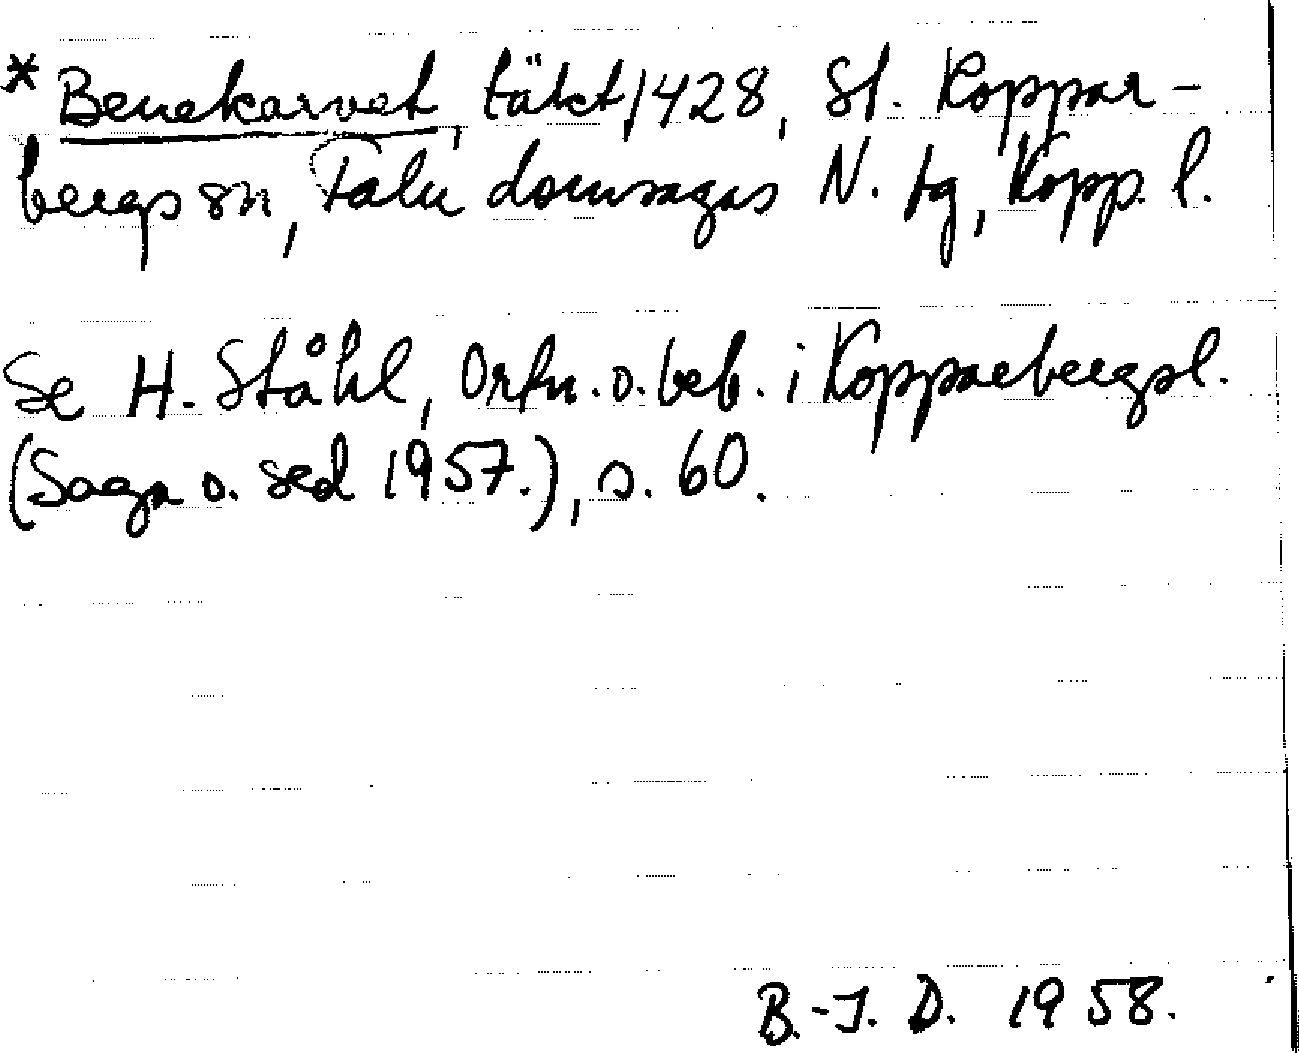 * Benekarvet, täkt 1428, St. Koppar-
bergs sn, Falu domsagas N. tg, Kopp. l.
Se H. Ståhl, Ortn. o. beb. i Kopparbergsl.
(Saga o. sed 1957.), s. 60.
B.-I. D. 1958.